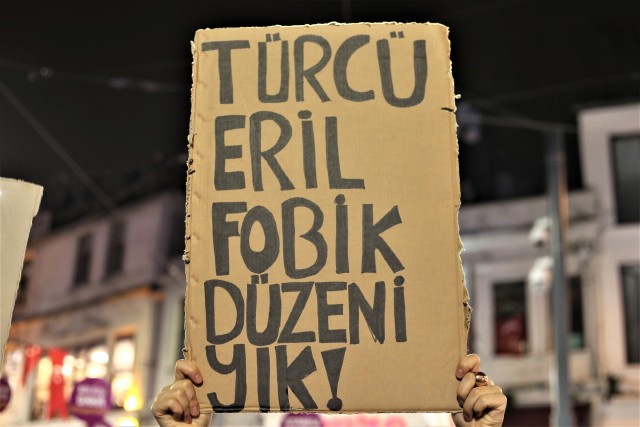 TÜRCÜ
ERİL
FOBİK
DÜZENİ
YIK!